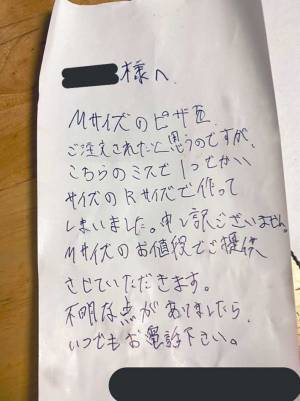 様へ
Mサイズのピザを
ご注文されたと思うのですが、
こちらのミスで1つ大きい
サイズのRサイズで作って
しまいました。申し訳ございません。
Mサイズのお値段でご提供
させていただきます。
不明な点がありましたら、
いつでもお電話下さい。